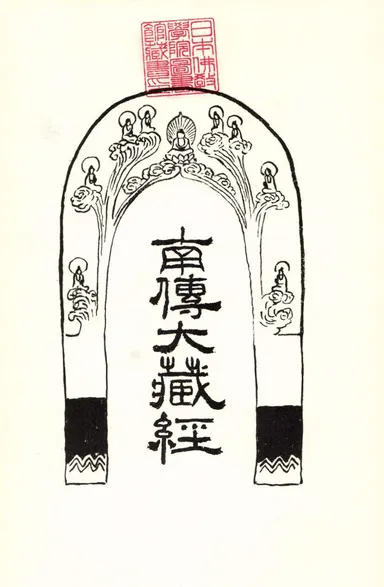 日本佛教
學院圖書
館藏書印
南傳大藏經